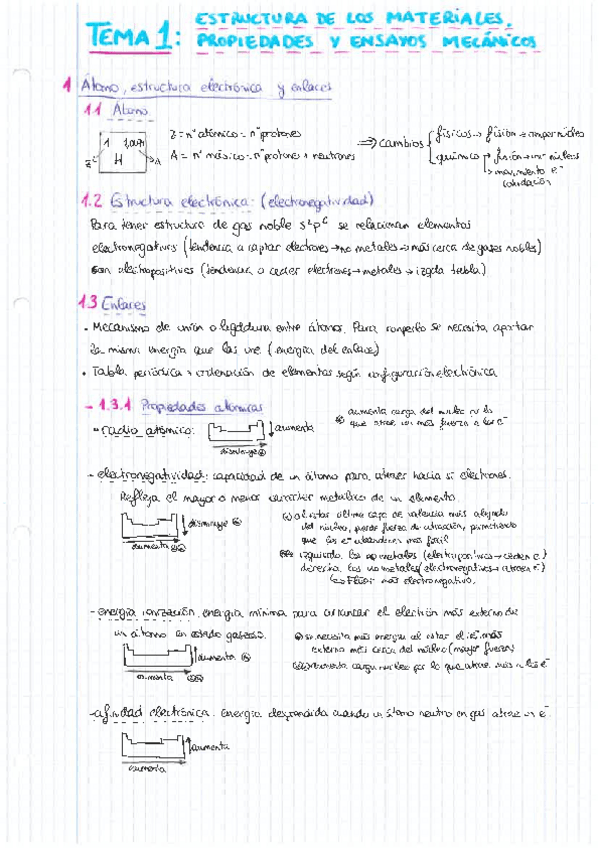 TEMA 1: ESTRUCTURA DE LOS MATERIALES,
PROPIEDADES Y ENSAYOS MECÁNICOS
1 Átomo, estructura electrónica y enlaces
1.1 Átomo
Z = nº atómico = nº protones
A = nº másico = nº protones + neutrones
1 1,0
H
Z A
⇒ cambios
físicos → fisión → romper núcleo
químico → fusión → unir núcleos
→ movimiento e-
1.2 Estructura electrónica: (electronegatividad)
Para tener estructura de gas noble s²p⁶ se relacionan elementos
electronegativos (tendencia a captar electrones → no metales → más cerca de gases nobles)
con electropositivos (tendencia a ceder electrones → metales → izqda tabla)
1.3 Enlaces
• Mecanismo de unión o ligadura entre átomos. Para romperlo se necesita aportar
la misma energía que las une (energía del enlace)
• Tabla periódica → ordenación de elementos según configuración electrónica
- 1.3.1 Propiedades atómicas
- radio atómico:
aumenta
disminuye
aumenta carga del núcleo por lo
que atrae con más fuerza a los e-
- electronegatividad: capacidad de un átomo para atraer hacia sí electrones.
Refleja el mayor o menor carácter metálico de un elemento.
disminuye
aumenta
al estar última capa de valencia más alejada
del núcleo, pierde fuerza de atracción, permitiendo
que los e- abandonen más fácil
izquierda los metales (electropositivos → ceden e-)
derecha los no metales (electronegativos → atraen e-)
↳ Flúor más electronegativo.
- energía ionización: energía mínima para arrancar el electrón más externo de
un átomo en estado gaseoso.
aumenta
aumenta
se necesita más energía al estar el e- más
externo más cerca del núcleo (mayor fuerza)
aumenta carga núcleo por lo que atrae más a los e-
- afinidad electrónica: energía desprendida cuando un átomo neutro en gas atrae un e-
aumenta
aumenta